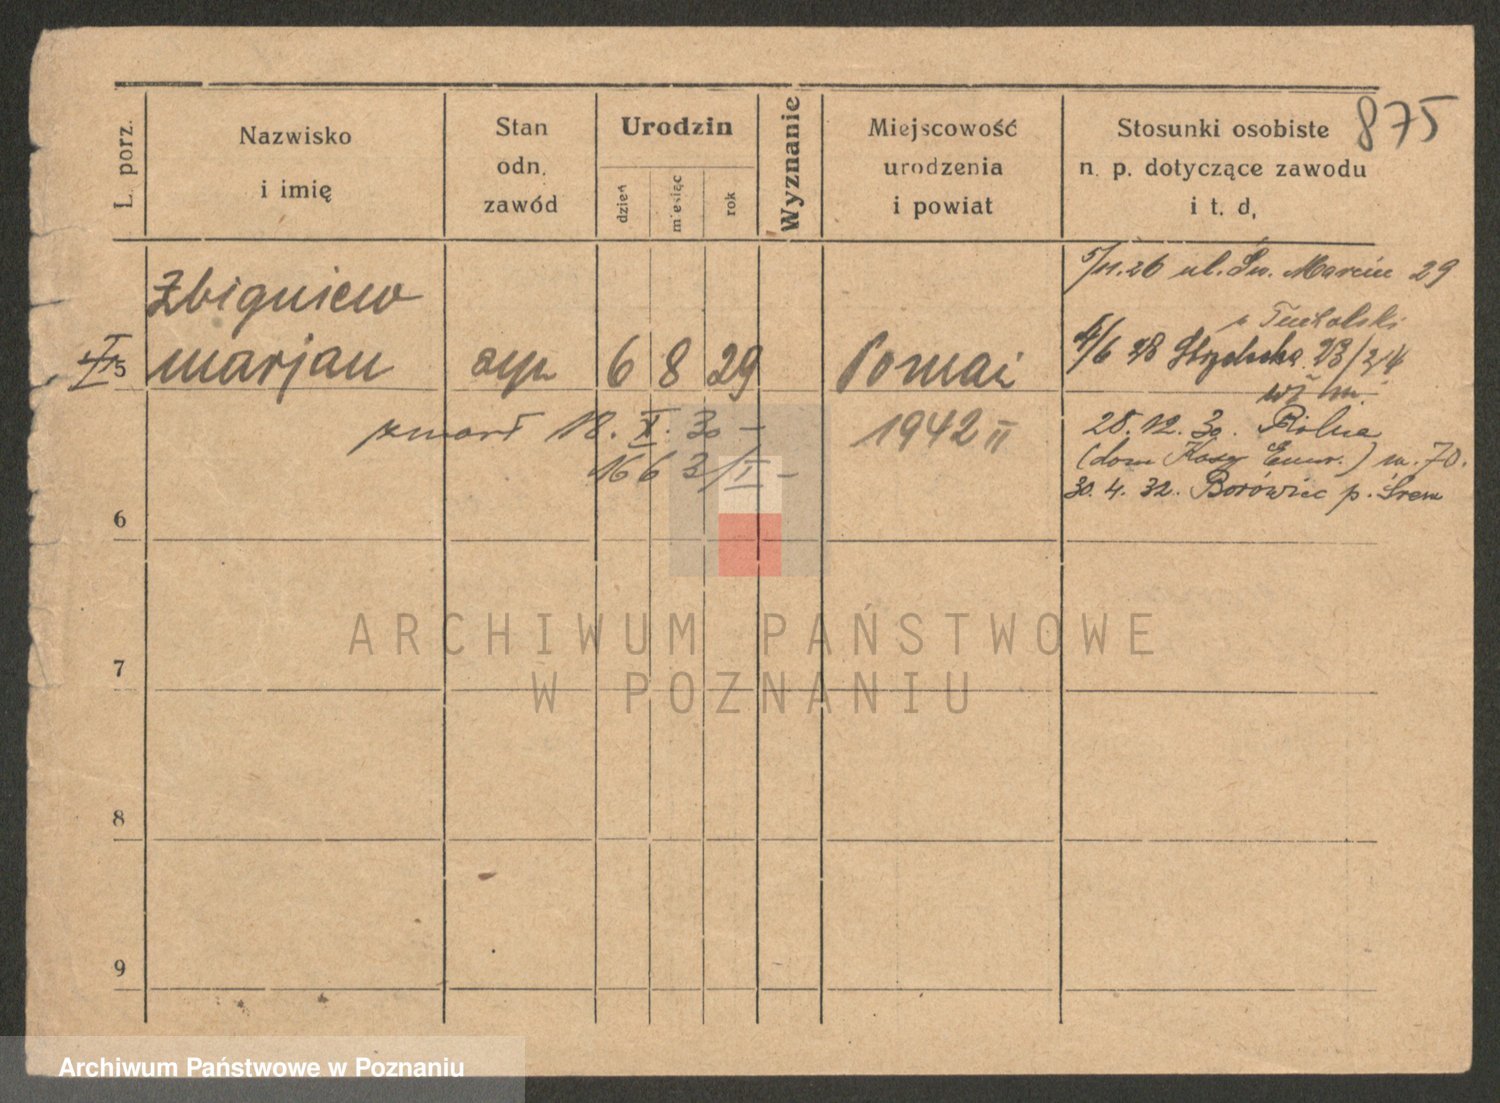 875
L. porz.
Nazwisko
i imię
Stan
odn.
zawód
Urodzin
dzień
miesiąc
rok
Wyznanie
Miejscowość
urodzenia
i powiat
Stosunki osobiste
n. p. dotyczące zawodu
i t. d,
5/11.26 ul. Św. Marcin 29
Zbigniew
p Tucholski
5 marjan syn 6 8 29 Poznań
4/6 28 Strzelecka 23/24
zmarł 18. X. 30 –
1942 II
28.12.30. Rolna
(dom Kasy Emer.) m. 70.
166 3/I –
30. 4. 32. Borówiec p. Śrem
6
7
8
9
ARCHIWUM PAŃSTWOWE
W POZNANIU
Archiwum Państwowe w Poznaniu